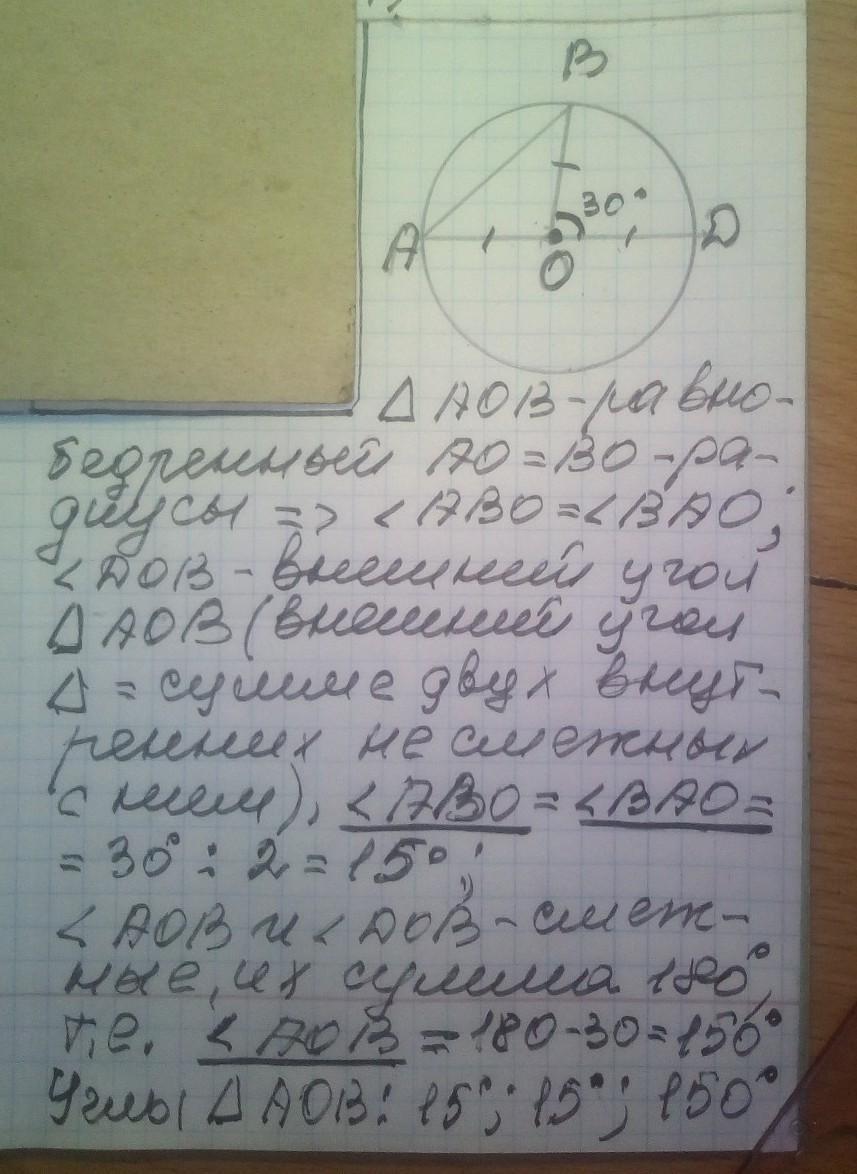 B
30°
A
D
O
Δ AOB - равно-
бедренный AO = BO - ра-
диусы => <ABO = <BAO;
<DOB - внешний угол
Δ AOB (внешний угол
Δ = сумме двух внут-
ренних не смежных
с ним), <ABO = <BAO =
= 30° : 2 = 15°;
<AOB и <DOB - смеж-
ные, их сумма 180°,
т.е. <AOB = 180 - 30 = 150°
Углы Δ AOB: 15°; 15°; 150°